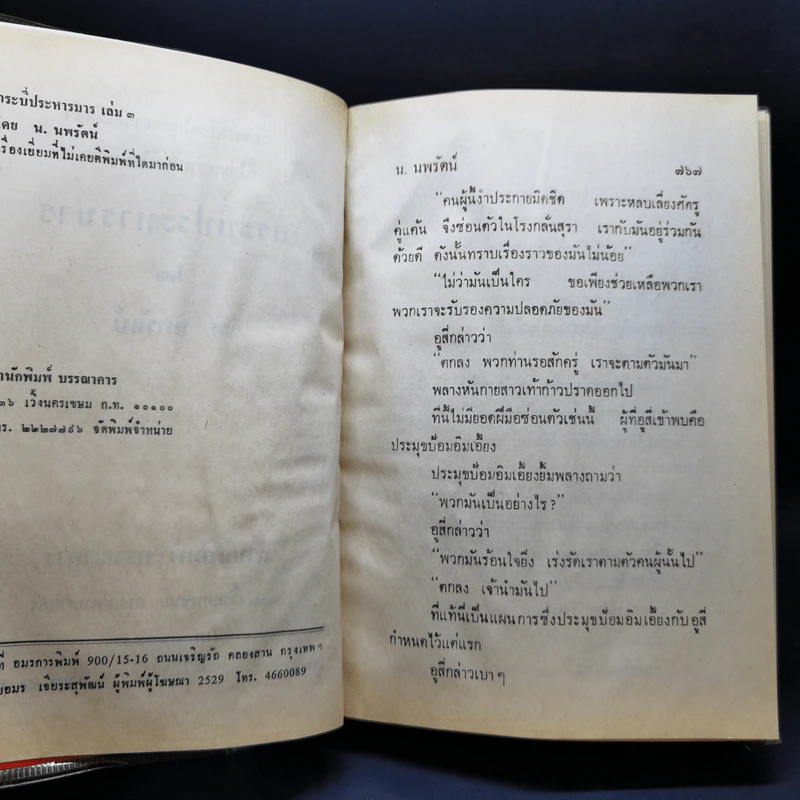 กระบี่ประหารมาร เล่ม ๓
โดย น. นพรัตน์
เรื่องเยี่ยมที่ไม่เคยตีพิมพ์ที่ใดมาก่อน
สำนักพิมพ์ บรรณาคาร
๓๖ เวิ้งนครเขษม ก.ท. ๑๐๑๐๐
โทร. ๒๒๒๗๗๙๖ จัดพิมพ์จำหน่าย
ที่ อมรการพิมพ์ 900/15-16 ถนนเจริญรัถ คลองสาน กรุงเทพฯ
นายอมร เจียระสุพัฒน์ ผู้พิมพ์ผู้โฆษณา 2529 โทร. 4660089
น. นพรัตน์ ๗๖๗
“คนผู้นี้งำประกายมิดชิด เพราะหลบเลี่ยงศัตรู
คู่แค้น จึงซ่อนตัวในโรงกลั่นสุรา เรากับมันอยู่ร่วมกัน
ด้วยดี ดังนั้นทราบเรื่องราวของมันไม่น้อย”
“ไม่ว่ามันเป็นใคร ขอเพียงช่วยเหลือพวกเรา
พวกเราจะรับรองความปลอดภัยของมัน”
อูสี่กล่าวว่า
“ตกลง พวกท่านรอสักครู่ เราจะตามตัวมันมา”
พลางหันกายสาวเท้าก้าวปราดออกไป
ที่นี้ไม่มียอดฝีมือซ่อนตัวเช่นนี้ ผู้ที่อูสี่เข้าพบคือ
ประมุขป้อมอิมเอี้ยง
ประมุขป้อมอิมเอี้ยงยิ้มพลางถามว่า
“พวกมันเป็นอย่างไร ?”
อูสี่กล่าวว่า
“พวกมันร้อนใจยิ่ง เร่งรัดเราตามตัวคนผู้นั้นไป”
“ตกลง เจ้านำมันไป”
ที่แท้นี่เป็นแผนการซึ่งประมุขป้อมอิมเอี้ยงกับอูสี่
กำหนดไว้แต่แรก
อูสี่กล่าวเบา ๆ